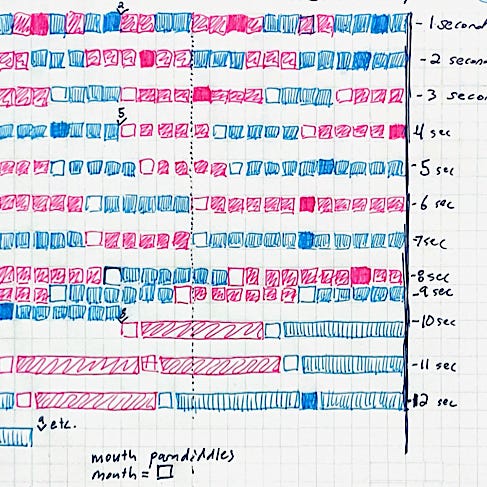 2
- 1 second
- 2 secon
- 3 secon
5
4 sec
- 5 sec
- 6 sec
- 7 sec
- 8 sec
- 9 sec
- 10 sec
- 11 sec
- 12 sec
etc.
mouth paradiddles
mouth = □